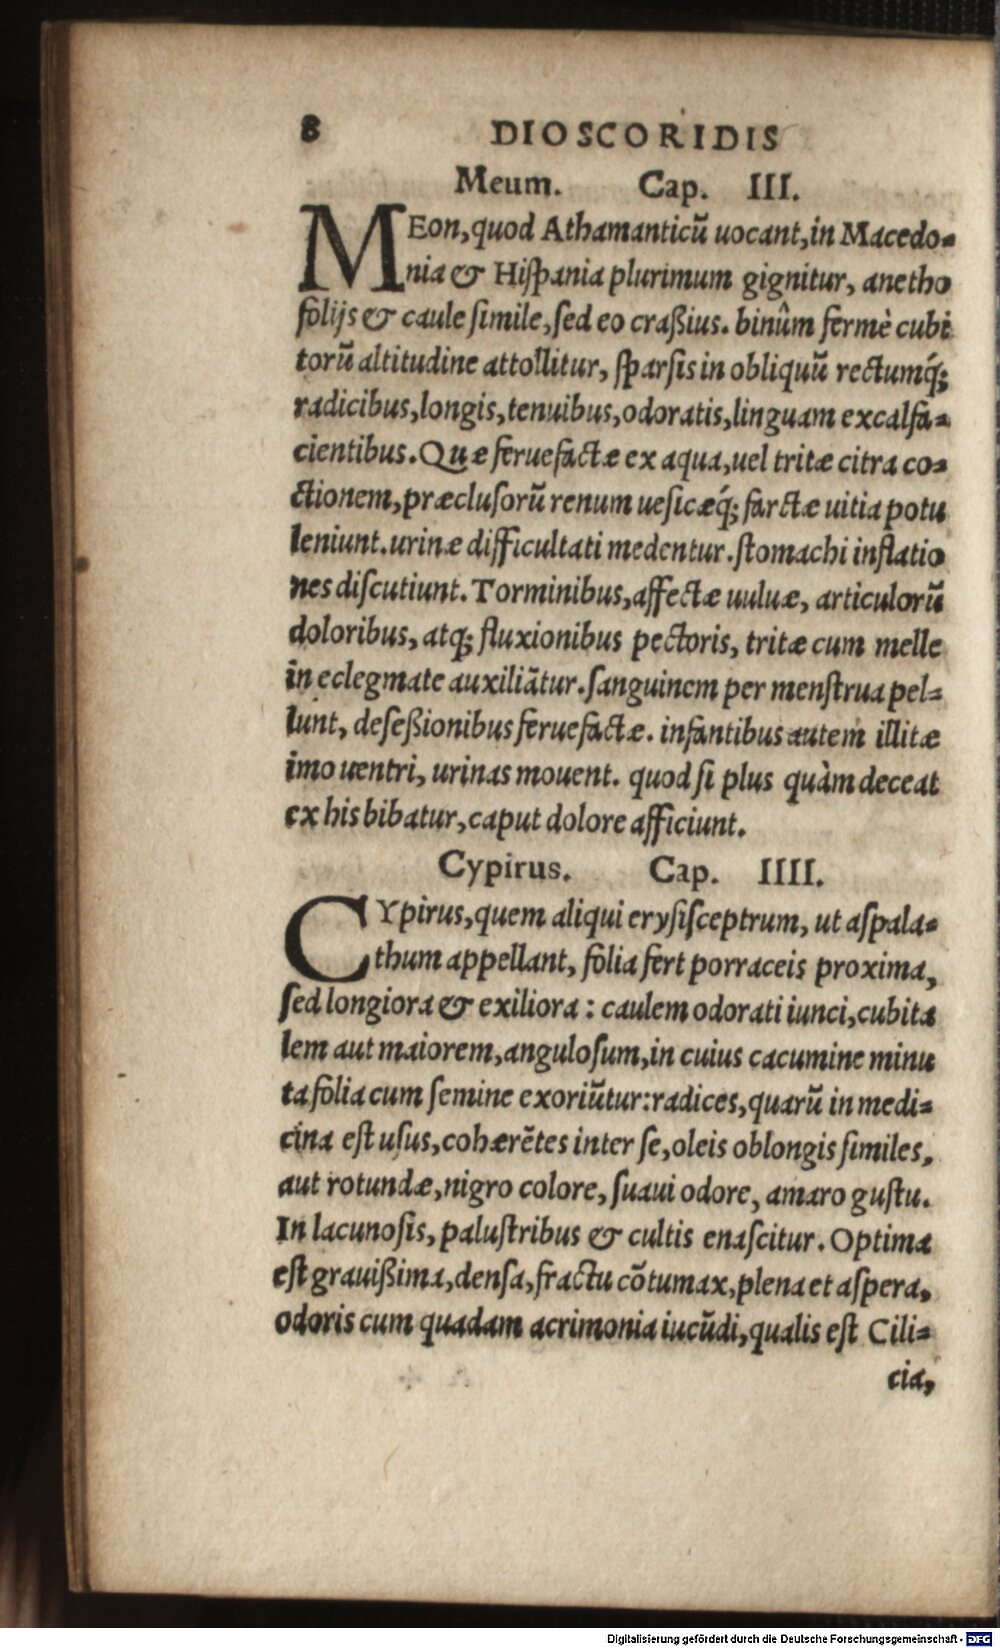 8 DIOSCORIDIS
Meum. Cap. III.
MEon, quod Athamanticũ uocant, in Macedo-
nia & Hiſpania plurimum gignitur, anetho
folijs & caule ſimile, ſed eo craßius. binûm fermè cubi
torũ altitudine attollitur, ſparſis in obliquũ rectumq́;
radicibus, longis, tenuibus, odoratis, linguam excalfa-
cientibus. Quæ feruefactæ ex aqua, uel tritæ citra co-
ctionem, præcluſorũ renum ueſicæq́; farctæ uitia potu
leniunt. urinæ difficultati medentur. ſtomachi inflatio
nes diſcutiunt. Torminibus, affectæ uuluæ, articulorũ
doloribus, atq; fluxionibus pectoris, tritæ cum melle
in eclegmate auxiliãtur. ſanguinem per menſtrua pel-
lunt, deſeßionibus feruefactæ. infantibus autem illitæ
imo uentri, urinas mouent. quod ſi plus quàm deceat
ex his bibatur, caput dolore afficiunt.
Cypirus. Cap. IIII.
CYpirus, quem aliqui eryſiſceptrum, ut aſpala-
thum appellant, folia fert porraceis proxima,
ſed longiora & exiliora: caulem odorati iunci, cubita
lem aut maiorem, anguloſum, in cuius cacumine minu
ta folia cum ſemine exoriũtur: radices, quarũ in medi-
cina eſt uſus, cohærẽtes inter ſe, oleis oblongis ſimiles,
aut rotundæ, nigro colore, ſuaui odore, amaro guſtu.
In lacunoſis, paluſtribus & cultis enaſcitur. Optima
eſt grauißima, denſa, fractu cõtumax, plena et aſpera,
odoris cum quadam acrimonia iucũdi, qualis eſt Cili-
cia,
Digitalisierung gefördert durch die Deutsche Forschungsgemeinschaft - DFG